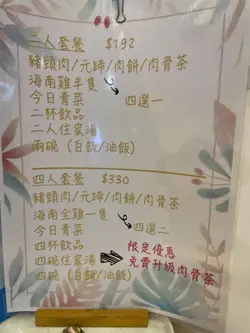 二人套餐 $192
豬頸肉/元蹄/肉餅/肉骨茶
海南雞半隻
今日青菜 四選一
二杯飲品
二人住家湯
兩碗(白飯/油飯)
四人套餐 $330
豬頸肉/元蹄/肉餅/肉骨茶
海南全雞一隻
今日青菜 四選二
四杯飲品 限定優惠
四碗住家湯 免費升級肉骨茶
四碗(白飯/油飯)